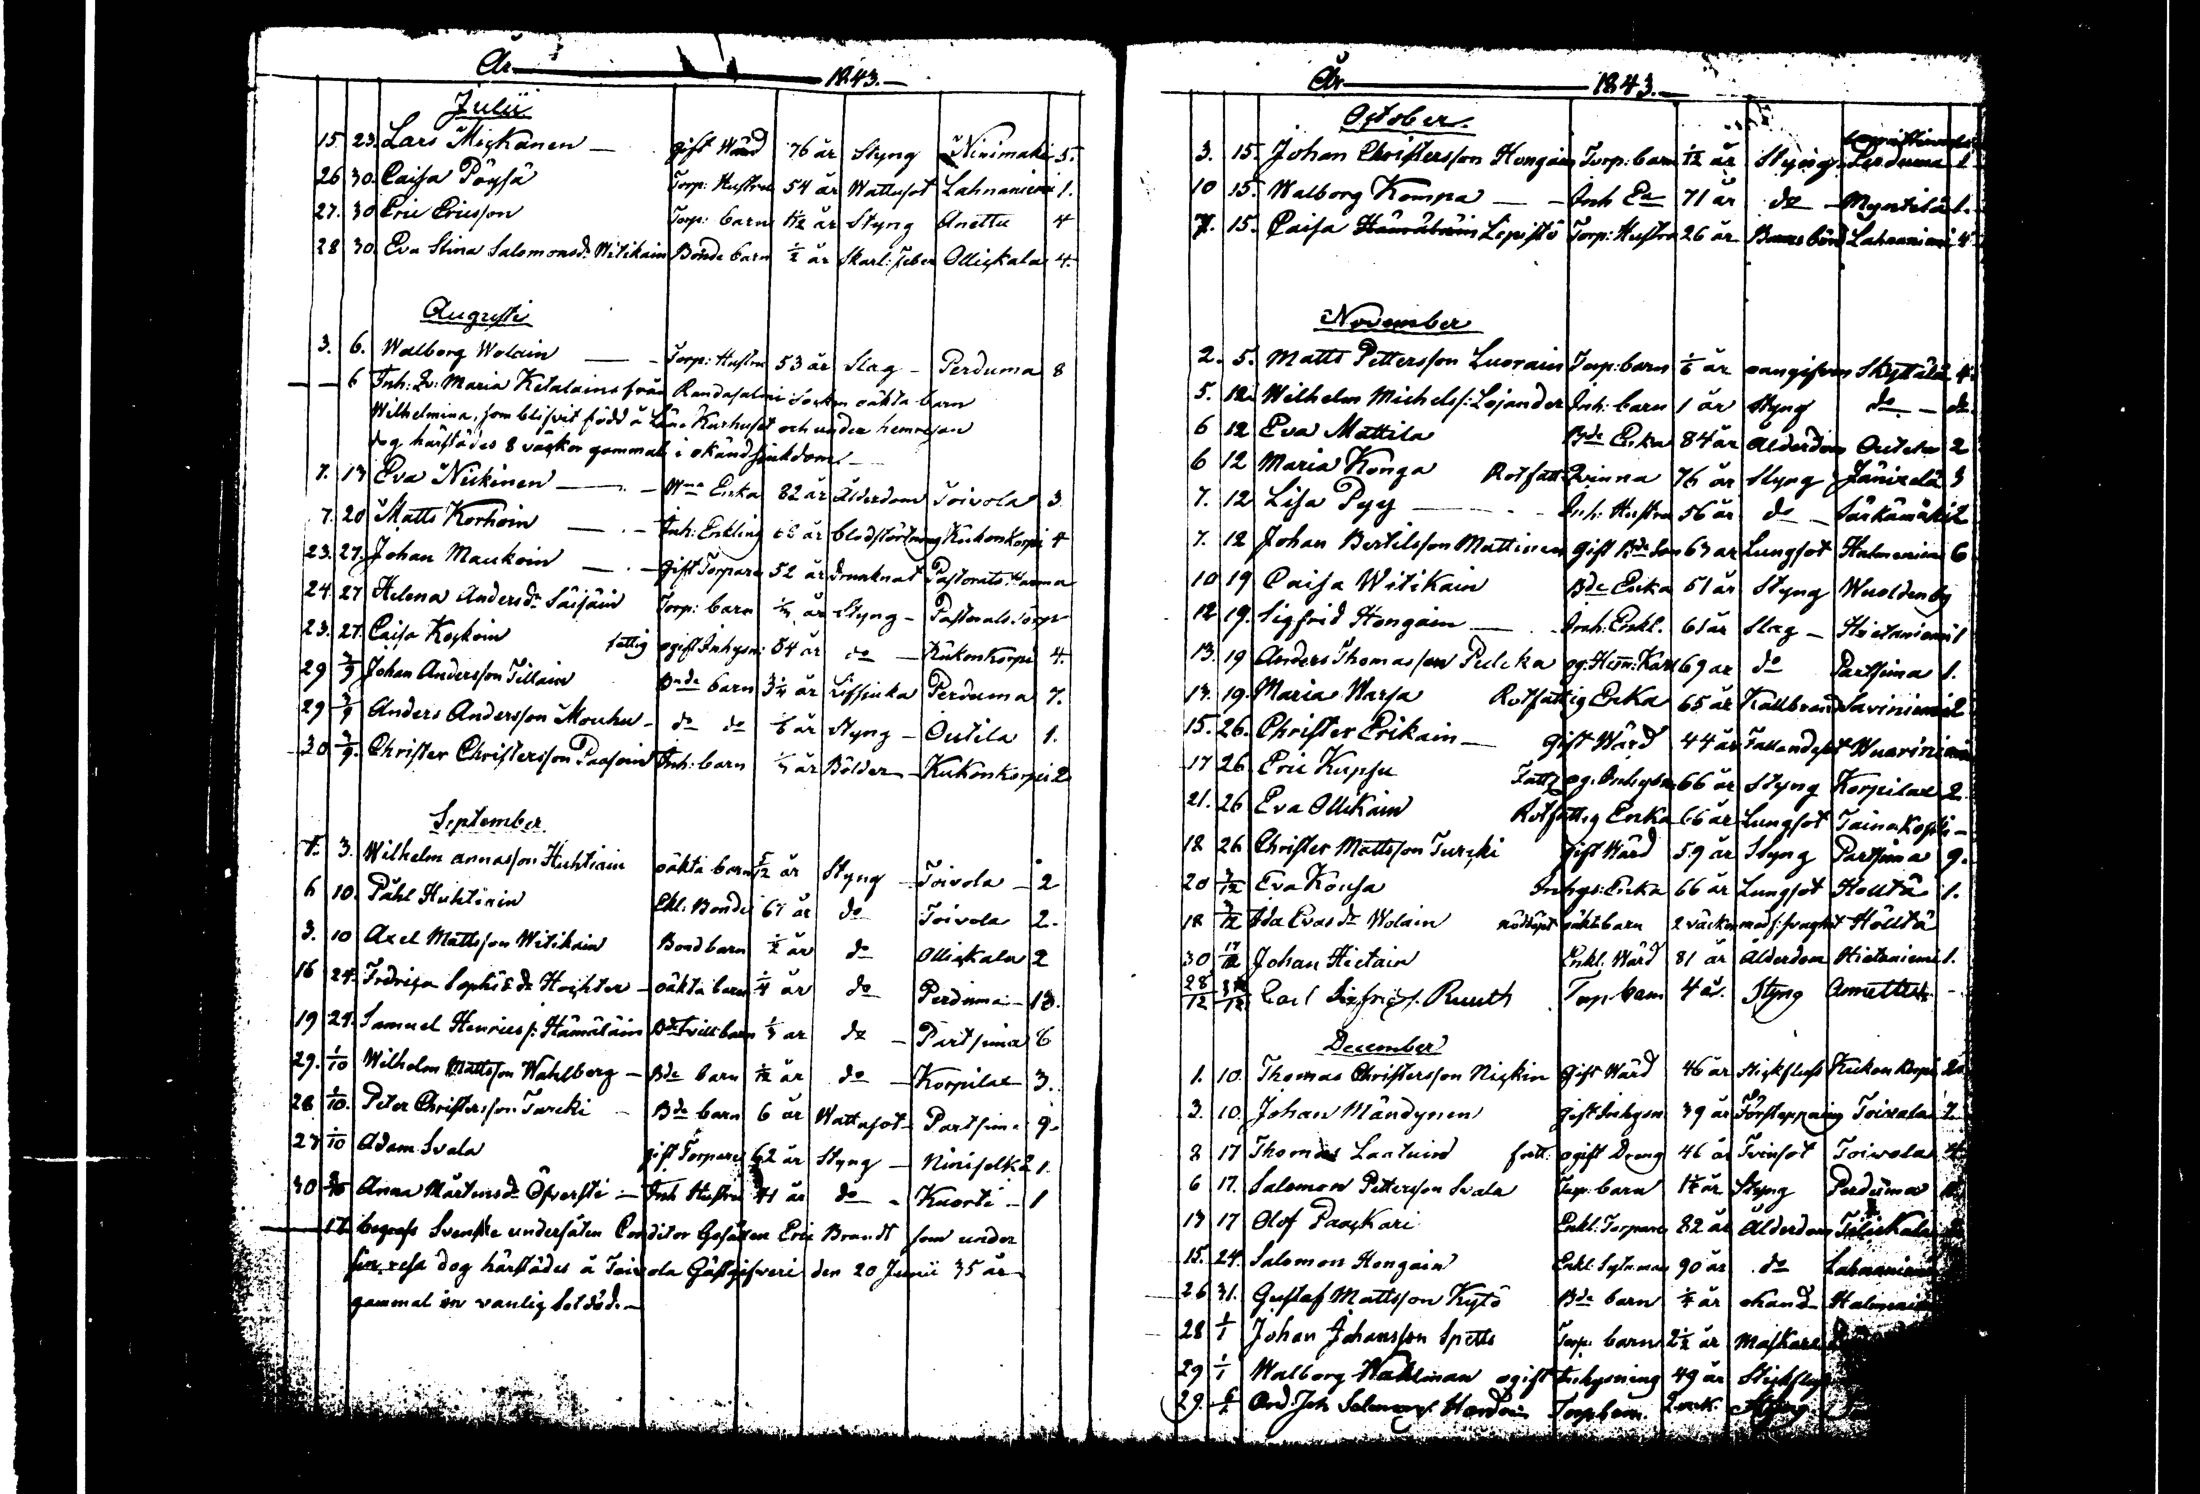 År 1843.
Julii
15. 23. Lars Mickanen gift Wärd 76 år Styng Niinimäki 5.
26 30. Caisa Pöyjä Torp: Hustru 54 år Wattusot Lahnaniemi 1.
27. 30 Eric Ericsson Torp: barn 1/12 år Styng Anettu 4
28 30. Eva Stina Salomonsdr Witikain Bonde barn 1/2 år Skarl: feber Ollickala 4.
Augusti
3. 6. Walborg Wolain Torp: Hustru 53 år Slag Perduma 8
6 Inh: Qv: Maria Ketolains från Randasalmi Socken oäkta barn
Wilhelmina, som blifvit född å Läns Kurhuset och under hemresan
dog härstädes 8 väckor gammal i okänd sjukdom.
7. 13 Eva Nickinen Enka 82 år Ålderdom Toivola 3
7. 20 Matts Korhoin Inh: Enkling år blodstörtning Kukonkorpi 4
23. 27. Johan Maukoin gift Torpare 52 år drunknat Pastorats
24. 27 Helena Andersdr Säisäin Torp: barn år Styng Pastorats Torp
23. 27. Caisa Kockoin fattig ogift Inhysn: 54 år do Kukonkorpi 4.
29 3/9 Johan Andersson Tillain Bnde barn 3 1/4 år Perduma 7.
29 3/9 Anders Andersson Mouhu do do 1/6 år Styng Outila 1.
30 3/9. Christer Christersson Paasoin Inh: barn år Bölder Kukonkorpi 2
September
1. 3. Wilhelm Annasson Huhtiain oäkta barn 5/12 år Styng Toivola 2
6 10. Påhl Huhtiain Ekl: Bonde 67 år do Toivola 2.
3. 10 Axel Mattsson Witikain Bond barn 1/2 år do Ollickala 2
16 24. Fredrica Sophiedr Hochter oäkta barn 1/4 år do Perduma 13.
19 24. Samuel Henricss: Hämäläin Bde barn år do Partsima 6
29. 1/10 Wilhelm Mattsson Wahlberg Bde barn 1/12 år do Korpilax 3.
28 1/10. Peter Christersson Turcki Bde barn 6 år Wattusot Partsima 9.
27 1/10 Adam Svala gift Torpare 62 år Styng Niniselkä 1.
30 Anna Mårtensdr Öfversti Inh Hustru 41 år do Kuorti 1
17. begrofs Svenske undersåten Conditor Gesällen Eric Brandt som under
sin resa dog härstädes å Toivola Gästgifveri den 20 Junii 35 år
gammal en vanlig sotdöd.
År 1843.
October.
3. 15. Johan Christersson Hongain Torp: barn 1/12 år Styng Perduma 1
10 15. Walborg Kompa Inh Ea 71 år do Myntilä 1.
7. 15. Caisa Hämäläin Lepistö Torp: Hustru 26 år Barnsbörd Lahnaniemi 4
November
2. 5. Matts Pettersson Luorain Torp. barn 1/6 år oangifven Skyttälä 4.
5. 12. Wilhelm Michelss: Lojander Inh: barn 1 år Styng do do
6 12 Eva Mattila Bde Enka 84 år Ålderdom Outila 2
6 12 Maria Konga Rotfatt: Qvinna 76 år Styng Jänixelä 3
7. 12 Lisa Pyy Inh: Hustru 56 år do Särkämäki 2
7. 12 Johan Bertilsson Mattinen gift Bde Son 63 år Lungsot Halmeniemi 6
10 19 Caisa Witikain Bde Enka 61 år Styng Wuoldenby
12 19. Sigfrid Hongain Inh: Enkl. 61 år Slag Hietaniemi 1
13. 19 Anders Thomasson Pulcka og: Hem: Karl 69 år do Partsima 1.
13. 19. Maria Warsa Rotfattig Enka 65 år Kallbrand Saviniemi 2
15. 26. Christer Erikain Gift Wärd 44 år Fallandesot
17 26 Eric Kupsu Fatt: og: Inhyses 66 år Styng Korpilax 2
21. 26 Eva Ollikain Rotfattig Enka 66 år Lungsot
18 26 Christer Mattsson Turcki gift Wärd 59 år Styng Partsima 9.
20 3/12 Eva Kousa Inhys: Enka 66 år Lungsot Hölltä 1.
18 3/12 Ida Evasdr Wolain nöddöpt oäkta barn 2 väckor Hölltä
30 17/12 Johan Hietain Enkl. Wärd 81 år Ålderdom Hietaniemi 1.
28/12 Carl Ruuth Torp barn 4 år. Styng Annettu
December
1. 10. Thomas Christersson Nickin Gift Wärd 46 år Stickfluss Kukonkorpi 2
3. 10. Johan Mändynen gift Inhysn 39 år Förstoppning Toivola 2
8 17 Thomas Laatuin fatt: ogift Dreng 46 år Tvinsot Toivola 4
6 17. Salomon Pettersson Svala Torp: barn år Styng Perduma
13 17 Olof Paackari Enkl: Torpare 82 år Ålderdom
15. 24. Salomon Hongain Enkl: Sytn.man 90 år do Lahnaniemi
26 31. Gustaf Mattsson Kytö Bde barn år okänd
28 1/1 Johan Johansson Spetts Torp: barn 2 1/2 år Maskar
29 1/1 Walborg Wahlman ogift Inhysning 49 år Stickfluss
29. And. Joh Torpbarn. Styng